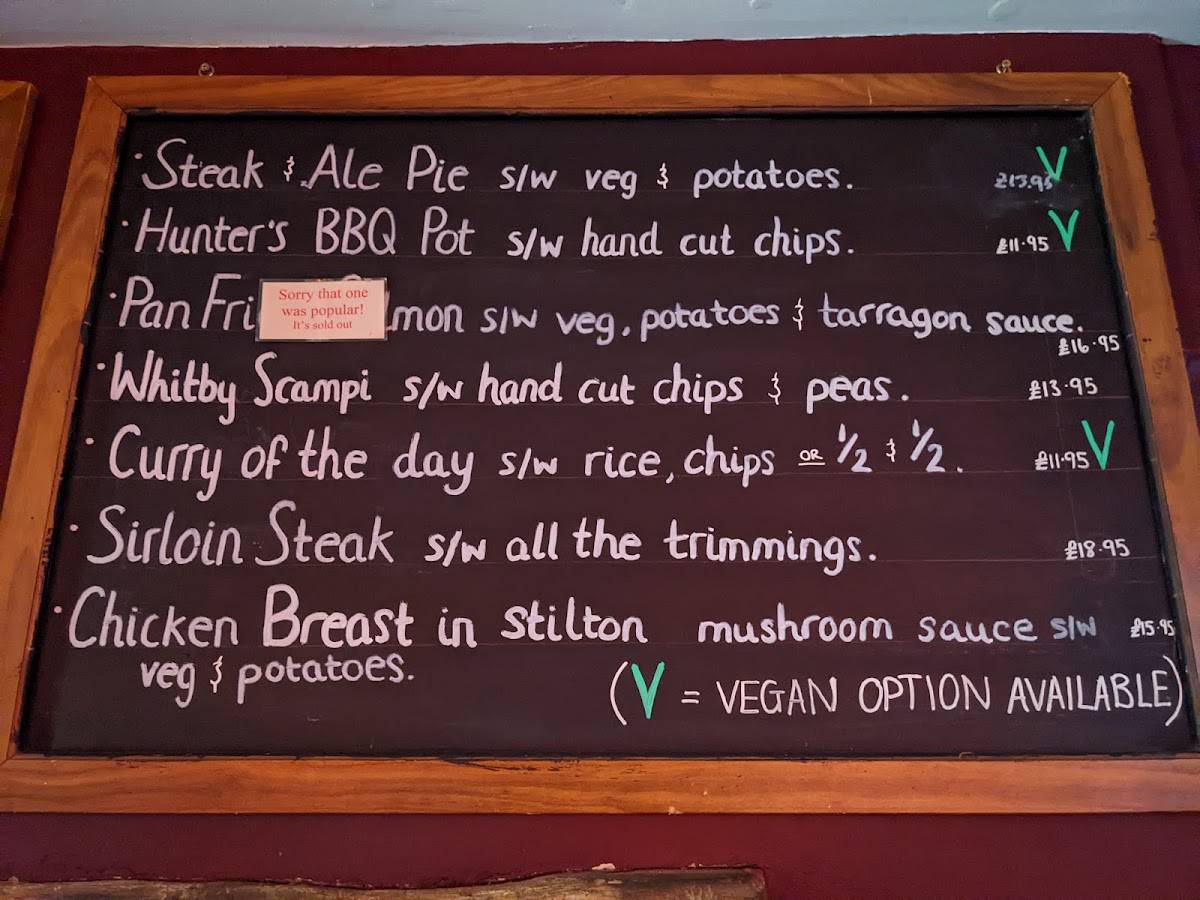 · Steak & Ale Pie s/w veg & potatoes. £13.95 V
· Hunter's BBQ Pot s/w hand cut chips. £11.95 V
· Pan Fri mon s/w veg, potatoes & tarragon sauce.
Sorry that one
was popular!
It's sold out
£16.95
· Whitby Scampi s/w hand cut chips & peas. £13.95
· Curry of the day s/w rice, chips OR 1/2 & 1/2. £11.95 V
· Sirloin Steak s/w all the trimmings. £18.95
· Chicken Breast in Stilton mushroom sauce s/w £15.95
veg & potatoes.
(V = VEGAN OPTION AVAILABLE)